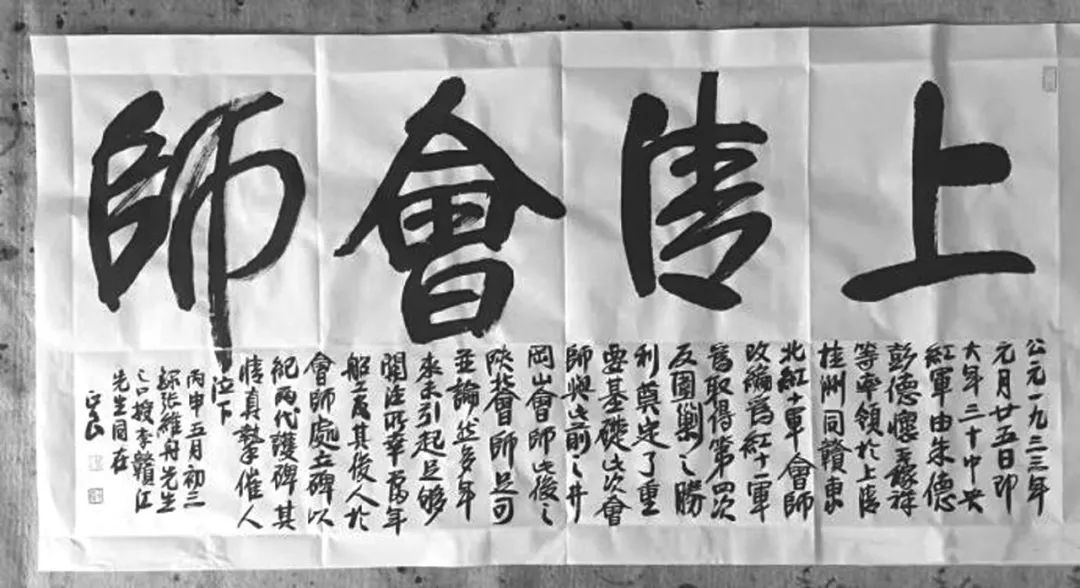 上清會師
公元一九三三年
元月廿五日即
大年三十中央
紅軍由朱德
彭德懷王稼祥
等率領於上清
桂洲同贛東
北紅十軍會師
改編爲紅十一軍
爲取得第四次
反圍剿之勝
利奠定了重
要基礎此次會
師與此前之井
岡山會師此後之
陝會師可
並論然多年
來未引起足够
關注所幸當年
船工及其後人於
會師處立碑以
紀兩代護碑其
情真摯催人
泣下
丙申五月初三
张維舟先生
之授李贛江
先生同在